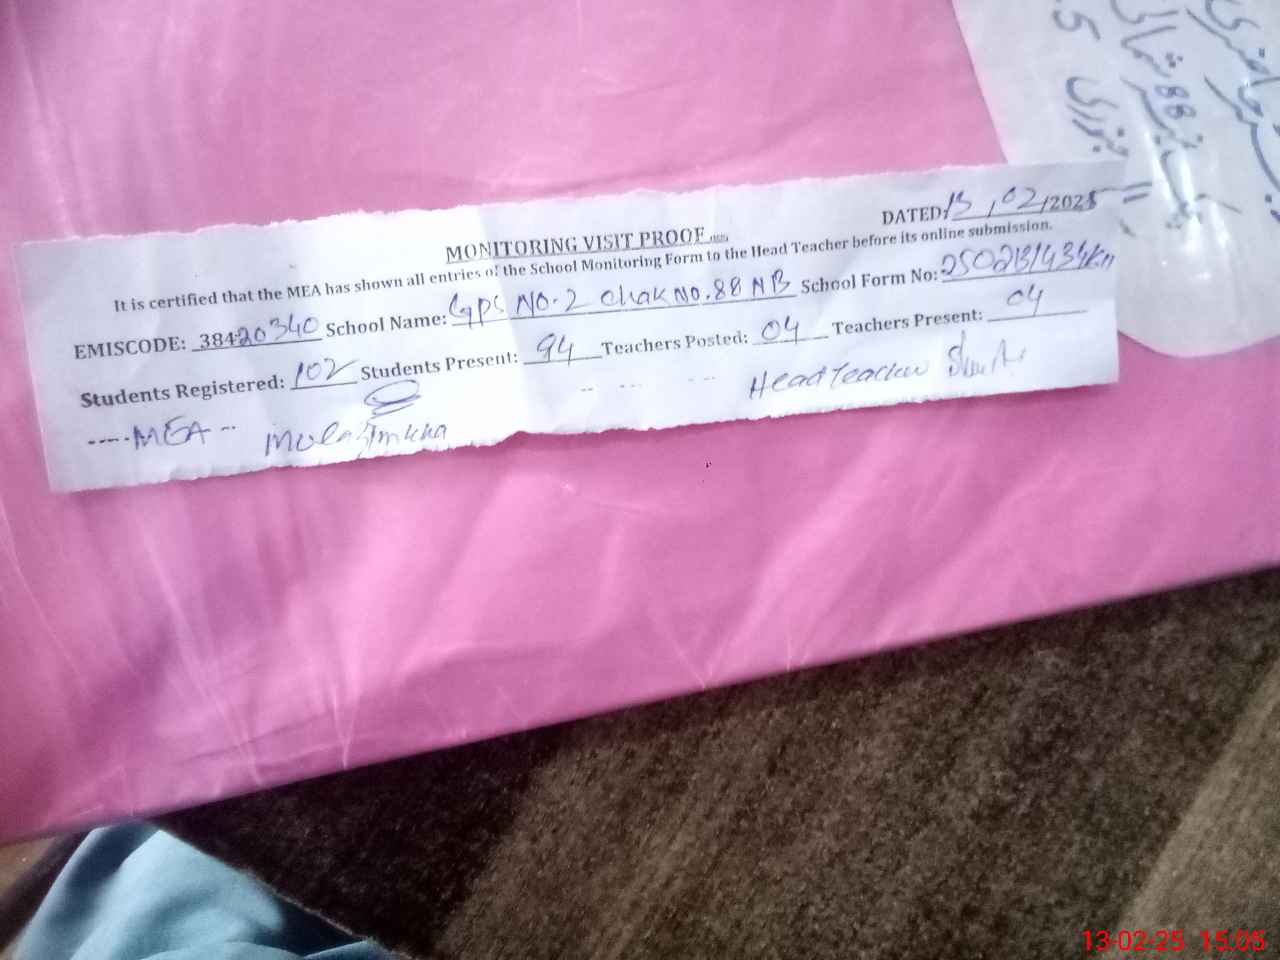 MONITORING VISIT PROOF
DATED: 13/02/2025
It is certified that the MEA has shown all entries of the School Monitoring Form to the Head Teacher before its online submission.
EMISCODE: 38420340 School Name: GPS NO.2 Chak No.88 NB School Form No:
Students Registered: 102 Students Present: 94 Teachers Posted: 04 Teachers Present: 04
-----MEA --
Head Teacher
88 شمالی
جنوری
13-02-25 15:05